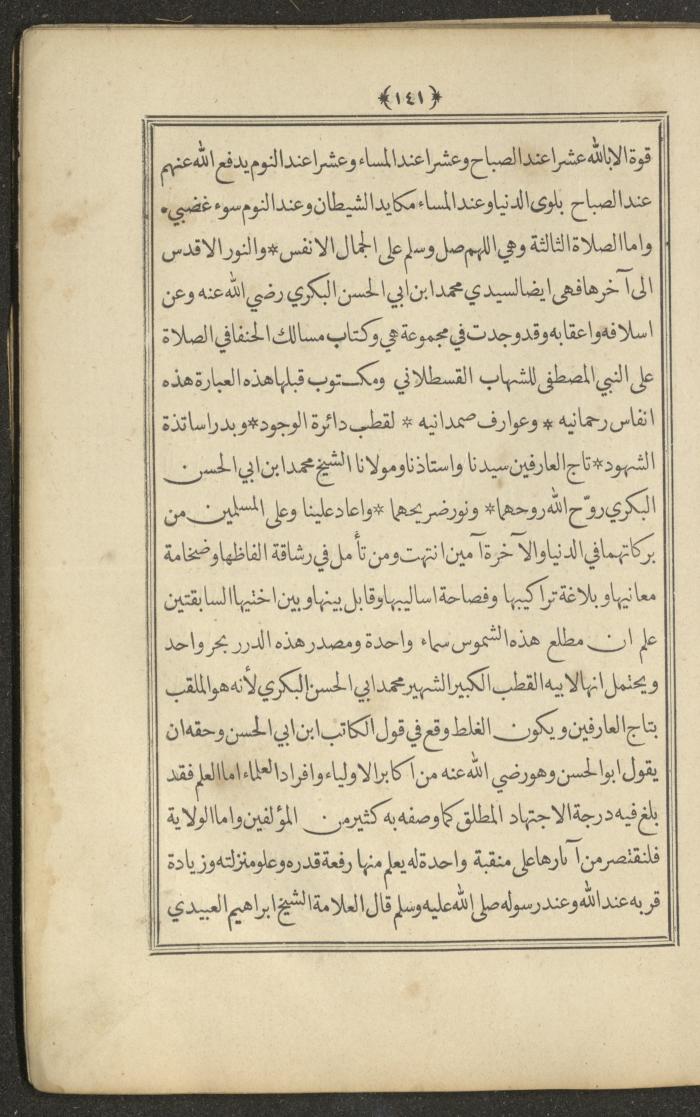 ﴿١٤١﴾
قوة الا بالله عشرا عند الصباح وعشرا عند المساء وعشرا عند النوم يدفع الله عنهم
عند الصباح بلوى الدنيا وعند المساء مكايد الشيطان وعند النوم سوء غضبي •
واما الصلاة الثالثة وهي اللهم صل وسلم على الجمال الانفس * والنور الاقدس
الى آخرها فهى ايضا لسيدي محمد ابن ابي الحسن البكري رضي الله عنه وعن
اسلافه واعقابه وقد وجدت في مجموعة هي وكتاب مسالك الحنفا في الصلاة
على النبي المصطفى للشهاب القسطلاني ومكتوب قبلها هذه العبارة هذه
انفاس رحمانيه * وعوارف صمدانيه * لقطب دائرة الوجود * وبدر اساتذة
الشهود * تاج العارفين سيدنا واستاذنا ومولانا الشيخ محمد ابن ابي الحسن
البكري روّح الله روحهما * ونور ضريحهما * واعاد علينا وعلى المسلمين من
بركاتهما في الدنيا والآخرة آمين انتهت ومن تأمل في رشاقة الفاظها وضخامة
معانيها وبلاغة تراكيبها وفصاحة اساليبها وقابل بينها وبين اختيها السابقتين
علم ان مطلع هذه الشموس سماء واحدة ومصدر هذه الدرر بحر واحد
ويحتمل انها لابيه القطب الكبير الشهير محمد ابي الحسن البكري لأنه هو الملقب
بتاج العارفين ويكون الغلط وقع في قول الكاتب ابن ابي الحسن وحقه ان
يقول ابو الحسن وهو رضي الله عنه من اكابر الاولياء وافراد العلماء اما العلم فقد
بلغ فيه درجة الاجتهاد المطلق كما وصفه به كثير من المؤلفين واما الولاية
فلنقتصر من آثارها على منقبة واحدة له يعلم منها رفعة قدره وعلو منزلته وزيادة
قربه عند الله وعند رسوله صلى الله عليه وسلم قال العلامة الشيخ ابراهيم العبيدي